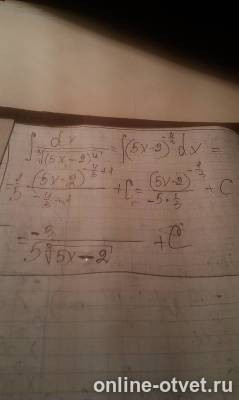 ∫ dx / ∛(5x-2)⁴ = ∫(5x-2)^(-4/3) dx =
(5x-2)^(-4/3+1) / (-4/3+1) + C = (5x-2)^(-1/3) / (-5·1/3) + C
= -3 / (5∛(5x-2)) + C
online-otvet.ru